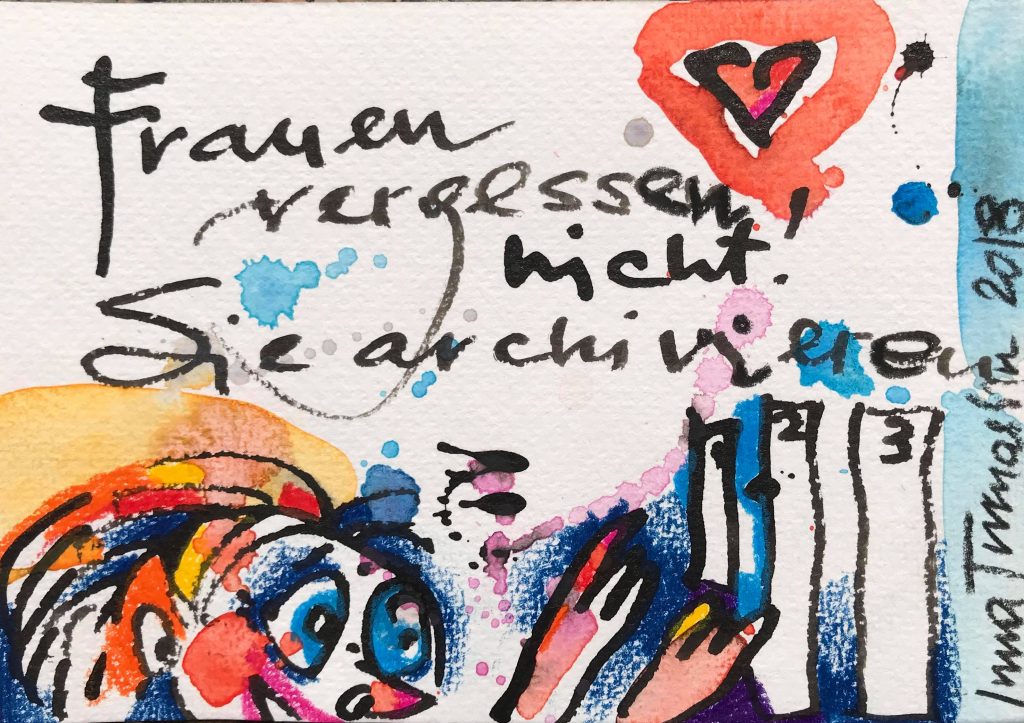 Frauen
vergessen
nicht!
Sie archivieren
1 2 3
2018